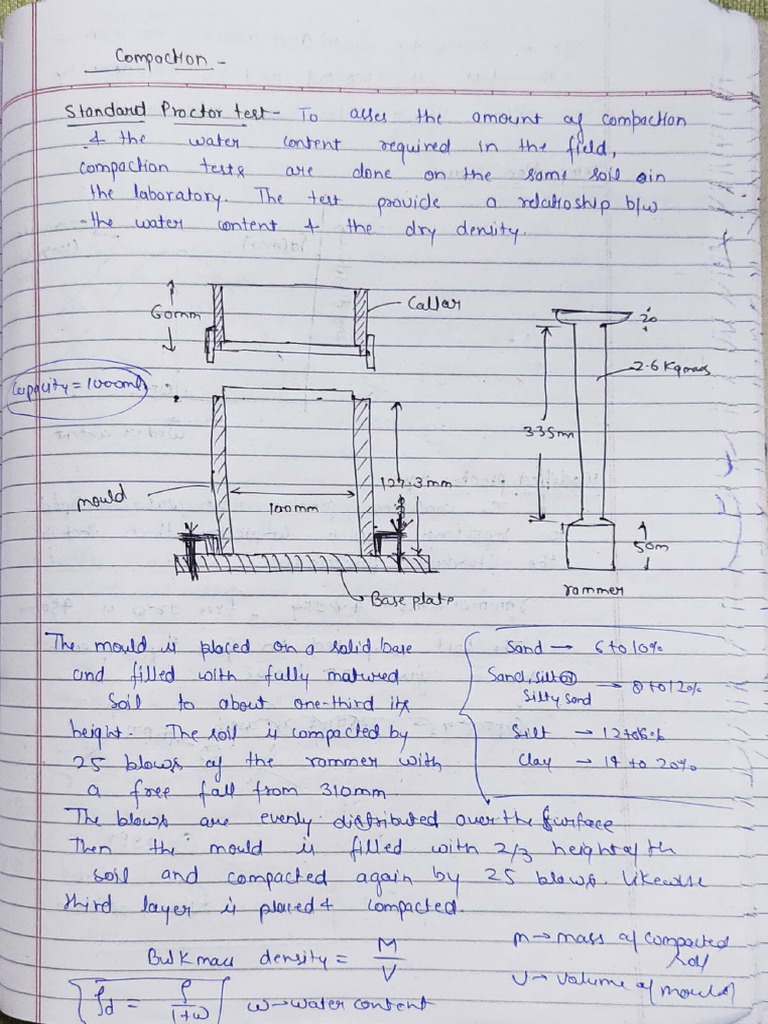 Compaction -
Standard Proctor test - To asses the amount of compaction
& the water content required in the field,
compaction tests are done on the same soil in
the laboratory. The test provide a relatioship b/w
the water content & the dry density.
60mm
Collar
20
Capacity = 1000ml
2.6 Kg mass
335mm
mould
100mm
127.3mm
50m
Base plate
rammer
The mould is placed on a solid base
and filled with fully matured
Soil to about one-third its
height. The soil is compacted by
25 blows of the rammer with
a free fall from 310mm
Sand → 6 to 10%
Sand, silt or
Silty sand → 8 to 12%
Silt → 12 to %
Clay → 14 to 20%
The blows are evenly distributed over the surface
Then the mould is filled with 2/3 height of th
soil and compacted again by 25 blows. likewise
third layer is placed & compacted.
Bulk mass density = M/V
m → mass of compacted
soil
V → volume of mould
ρd = ρ/1+w w → water content